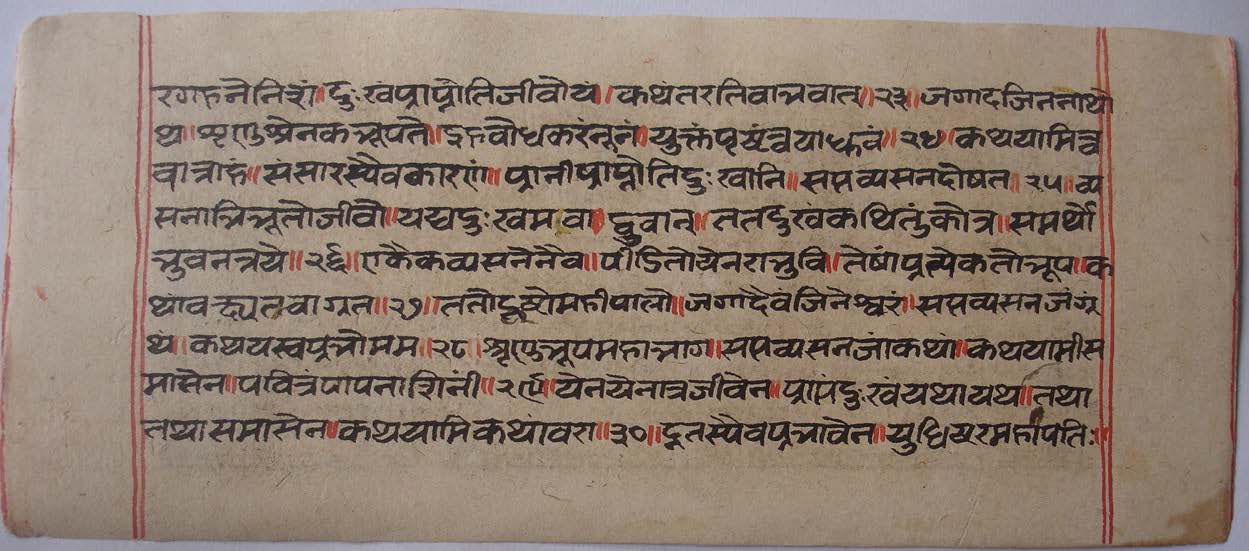 रगहनेतिरां। दुःखंप्राप्नोतिजीवोयं। कथंतरतिवान्नवान्॥२३॥ जगादजिननाथो
थ॥ शृणुश्रेनकभूपते॥ इहबोधकरंनूनं॥ युक्तंपृष्टंत्वयाध्रुवं॥२४॥ कथयामित्व
वात्राहं॥ संसारस्यैवकारणं॥ प्रानीप्राप्नोतिदुःखानि॥ सप्तव्यसनदोषत॥२५॥ व्य
सनाभिभूतोजीवो॥ यद्यदुःखमवा द्रुवान्॥ तत्तदुखंकथितुंकोत्र॥ समर्थो
भुवनत्रये॥२६॥ एकैकव्यसनेनैव॥ पीडितोयेनराभुवि॥ तेषांप्रत्येकतोभूप॥ क
थांवक्ष्यतवाग्रत॥२७॥ ततोद्रष्टोमहीपालो॥ जगादैवंजिनेश्वरं॥ सप्तव्यसनजंगुं
थं॥ कथयस्वप्रभोमम॥२८॥ शृणुभूपमहाभाग॥ सप्तव्यसनजांकथां॥ कथयामीस
मासेन॥ पवित्रंपापनाशिनीं॥२९॥ येनयेनात्रजीवेन॥ प्राप्तंदुःखंयथायथ॥ तथा
तथासमासेन॥ कथयामिकथांवरा॥३०॥ द्यूतस्यैवप्रभावेन॥ युधिष्टिरमहीपतिः॥